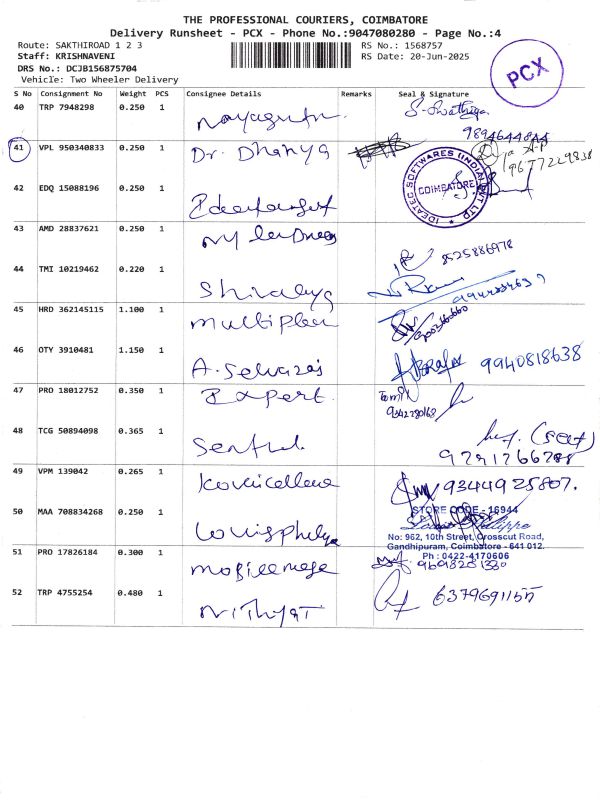 THE PROFESSIONAL COURIERS, COIMBATORE
Delivery Runsheet - PCX - Phone No.:9047080280 - Page No.:4
Route: SAKTHIROAD 1 2 3
RS No.: 1568757
Staff: KRISHNAVENI
RS Date: 20-Jun-2025
DRS No.: DCJB156875704
Vehicle: Two Wheeler Delivery
PCX
S No Consignment No Weight PCS Consignee Details Remarks Seal & Signature
40 TRP 7948298 0.250 1
S. Swathiya
9894644844
41 VPL 950340833 0.250 1 Dr. Dhanya
9677229838
IDEATEC SOFTWARES (INDIA) PVT LTD
COIMBATORE
42 EDQ 15088196 0.250 1
43 AMD 28837621 0.250 1
8525886978
44 TMI 10219462 0.220 1 Shivalaya
45 HRD 362145115 1.100 1 Multiplex
46 OTY 3910481 1.150 1 A. Selvaraj
9940818638
47 PRO 18012752 0.350 1 Expert
48 TCG 50894098 0.365 1 Senthil
9291266288
49 VPM 139042 0.265 1
9344925807.
50 MAA 708834268 0.250 1 Louisphelye
STORE CODE - 16944
Louis Philippe
No: 962, 10th Street, Crosscut Road,
Gandhipuram, Coimbatore - 641 012.
Ph : 0422-4170606
51 PRO 17826184 0.300 1
52 TRP 4755254 0.480 1 Nithyat